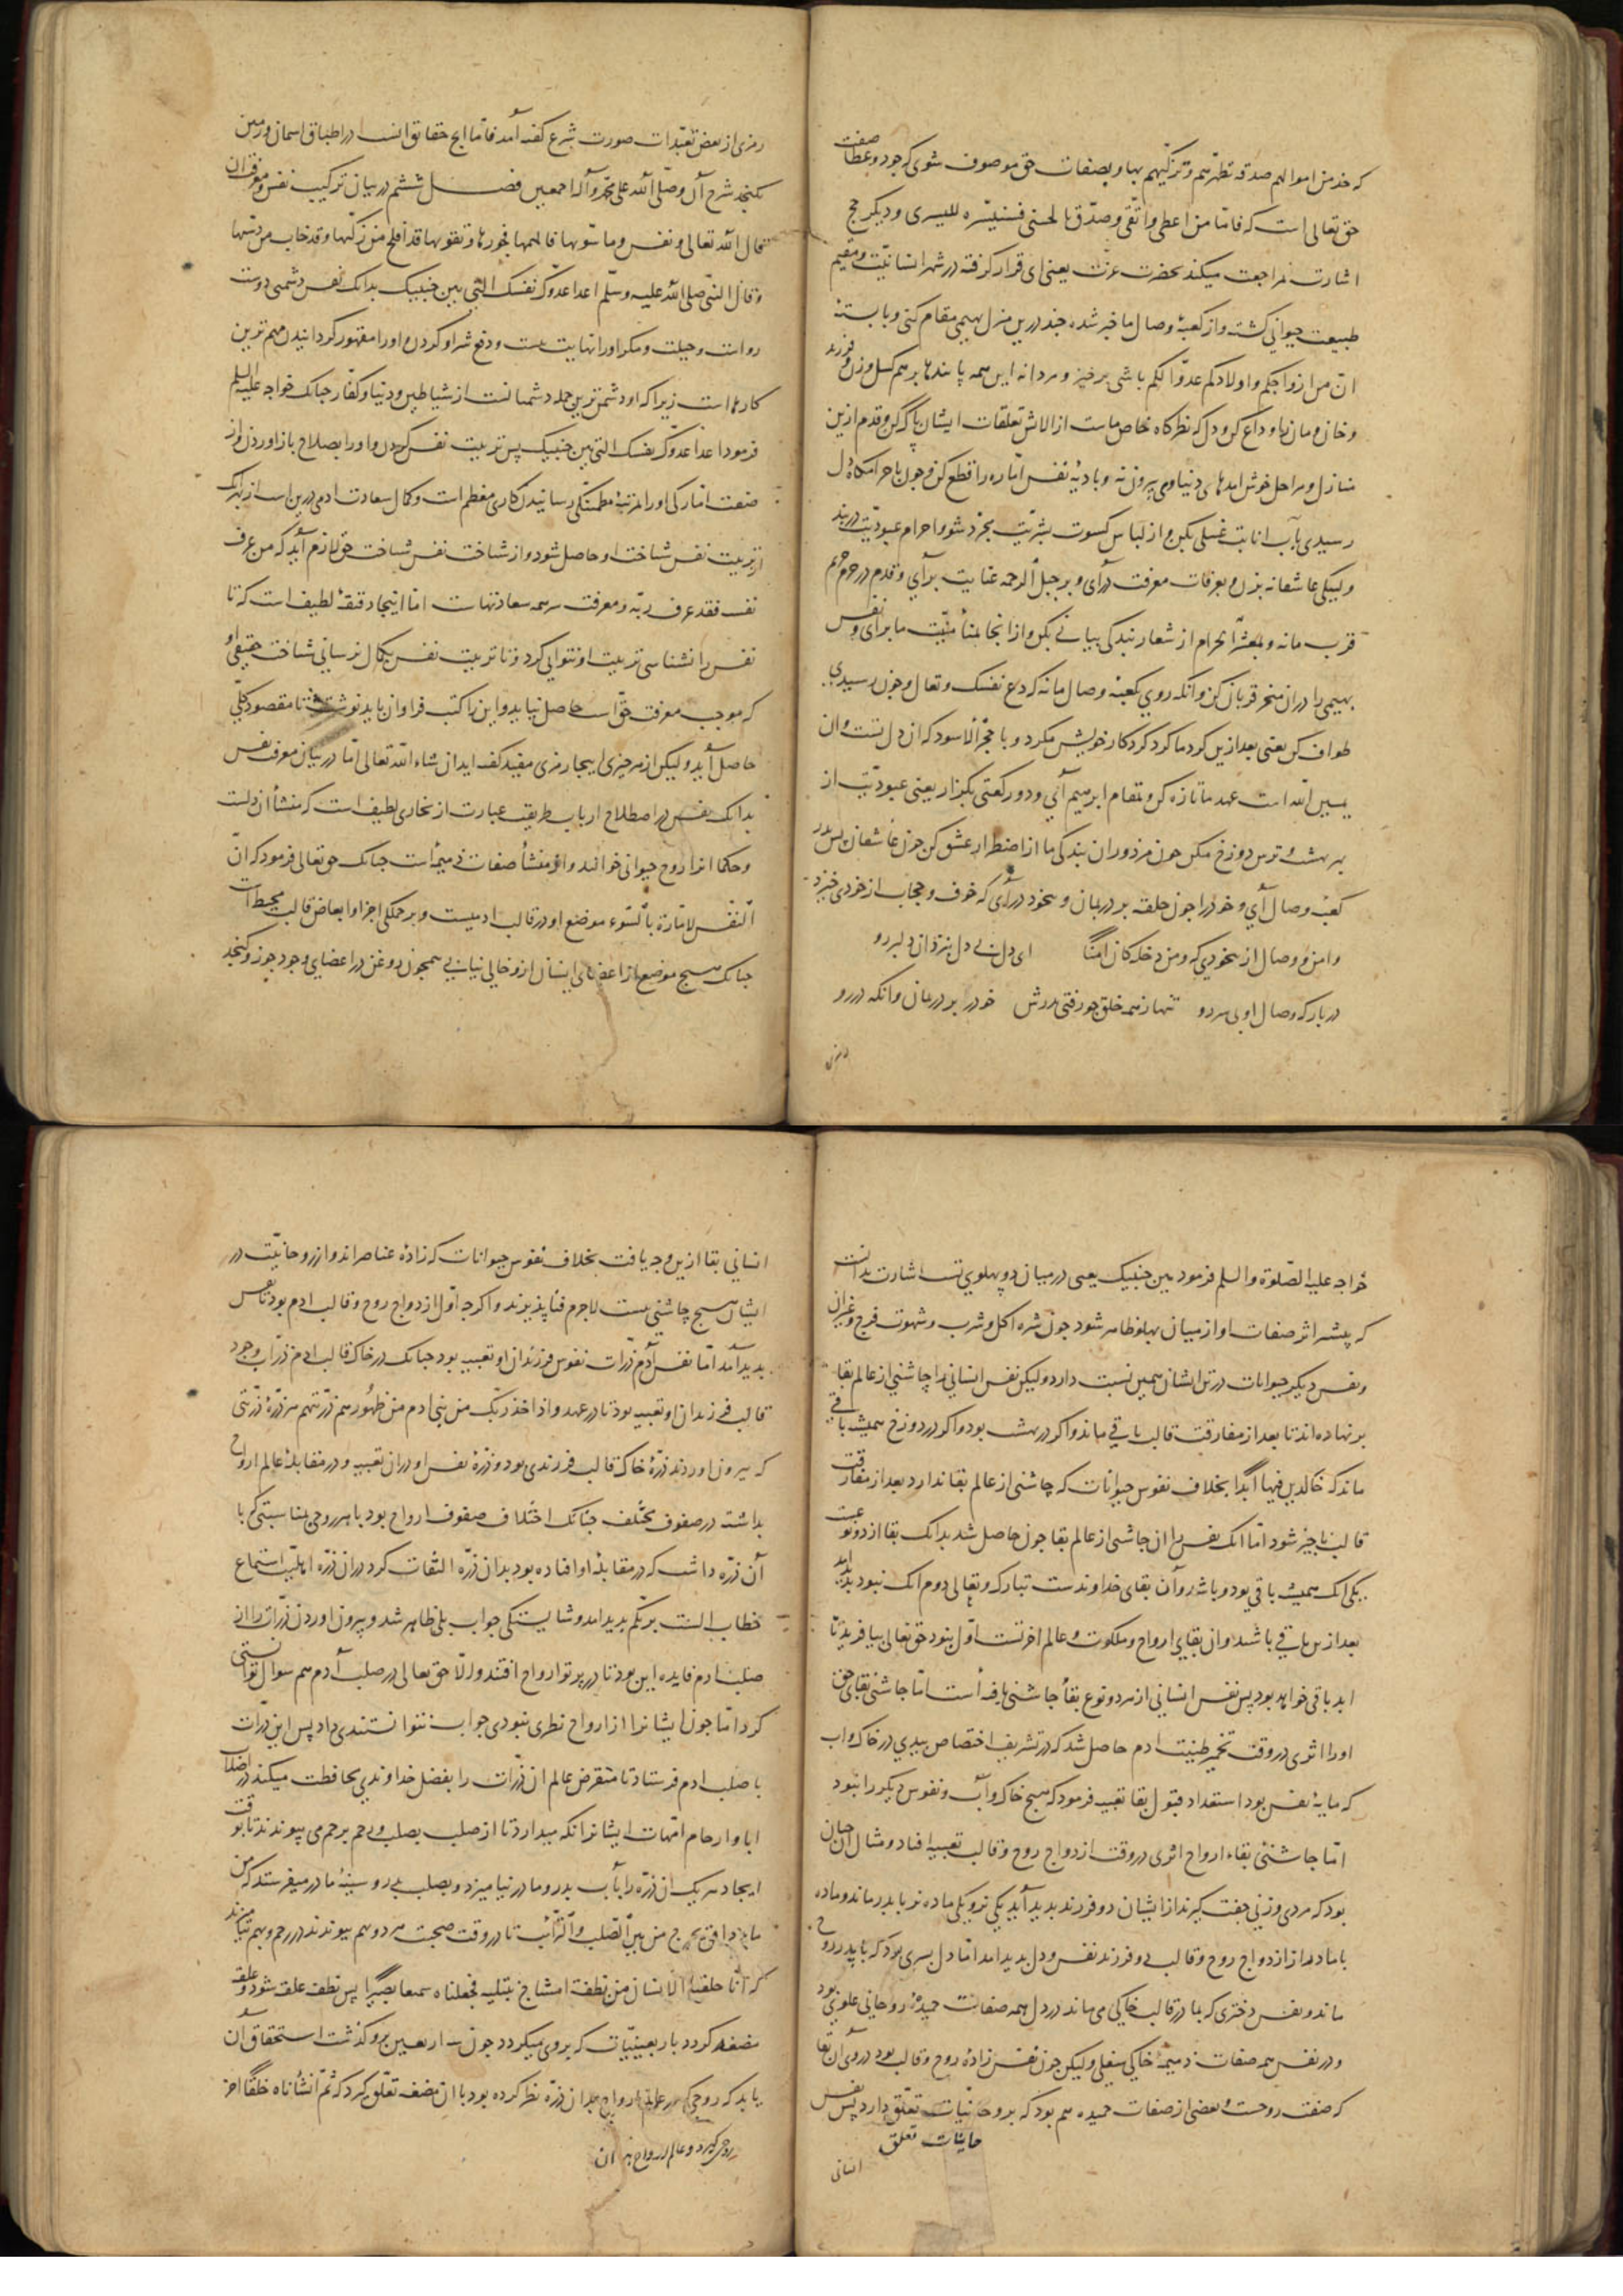 که خذ من اموالهم صدقه تطهرهم و تزکیهم بها و بصفات حق موصوف شوی که جود و عطا صفت
حق تعالی است که فاما من اعطی و اتقی و صدق بالحسنی فسنیسره للیسری و دیگر حج
اشارت بمراجعت میکند بحضرت عزت یعنی ای قرار گرفته در شهر انسانیت و مقیم
طبیعت حیوانی گشته و از کعبهٔ وصال ما خبر شده چند درین منزل بهیمی مقام کنی و پا بستهٔ
ان من ازواجکم و اولادکم عدوا لکم باشی برخیز و مردانه این همه پای بندها بر هم گسل و زن و فرزند
و خان و مان را وداع کن و دل که نظرگاه خاص ماست از الاش تعلقات ایشان پاک کن و قدم ازین
منازل و مراحل خوش امدهای دنیاوی بیرون نه و بادیهٔ نفس اماره را قطع کن و چون باحرامگاه دل
رسیدی بآب انابت غسلی بکن و از لباس کسوت بشریت مجرد شو و احرام عبودیت دربند
و لبیکی عاشقانه بزن و بعرفات معرفت درآی و بر جبل الرحمه عنایت برآی و قدم در حرم حریم
قرب ما نه و بمشعر الحرام از شعار بندگی بیاتی بکن و از انجا بمنأ منیت ما برای و نفس
بهیمی را در ان منحر قربان کن وانگه روی بکعبهٔ وصال ما نه که دع نفسک و تعال و چون رسیدی
طواف کن یعنی بعد ازین گرد ما گرد گرد کار خویش مگرد و با حجر الاسود که ان دل تست و ان
یمین الله است عهد ما تازه کن و بمقام ابرهیم آئی و دو رکعتی بگزار یعنی عبودیت از
بهر بهشت و ترس دوزخ مکن چون مزدوران بندگی ما از اضطرار عشق کن چون عاشقان پس بدر
کعبه وصال آی و خود را چون حلقه بر در بمان و بیخود درآی که خوف و حجاب از خودی خیزد
و امن و وصال از بیخودی که و من دخله کان امنًا ای دل بی دل بنزد ان دلبر رو
در بارگه وصال او بی سر رو تنها ز همه خلق چو رفتی بدرش خود را بر در بمان وانگه در رو
رمزی از بعض تعبدات صورت شرع گفته آمد فاما انچ حقایق انست در اطباق اسمان و زمین
نگنجد شرح آن و صلی الله علی محمد و آله اجمعین فصل ششم در بیان ترکیب نفس و معرفت ان
قال الله تعالی و نفس و ما سویها فالهمها فجورها و تقویها قد افلح من زکیها و قد خاب من دسیها
و قال النبی صلی الله علیه و سلم اعدا عدوک نفسک التی بین جنبیک بدانک نفس دشمنی دوست
رواست و حیلت و مکر او را نهایت نیست و دفع شر او کردن و او را مقهور گردانیدن مهم ترین
کارهاست زیرا که او دشمن ترین جمله دشمنانست از شیاطین و دنیا و کفار چنانک خواجه علیه السلم
فرمود اعدا عدوک نفسک التی بین جنبیک پس تربیت نفس کردن و او را بصلاح باز اوردن و از
صفت امارگی او را بمرتبهٔ مطمئنگی رسانیدن کاری معظم است و کمال سعادت ادمی درین است از بهر انک
از تربیت نفس شناخت او حاصل شود و از شناخت نفس شناخت حق لازم آید که من عرف
نفسه فقد عرف ربه و معرفت سر همه سعادتهاست اما اینجا دقیقهٔ لطیف است که تا
نفس را نشناسی تربیت او نتوانی کرد و تا تربیت نفس بکمال نرسانی شناخت حقیقی او
که موجب معرفت حق است حاصل نیاید و این را کتب فراوان باید نوشت تا مقصود کلی
حاصل آید ولیکن از هر چیزی اینجا رمزی مفید گفته اید ان شاء الله تعالی اما در بیان معرفت نفس
بدانک نفس در اصطلاح ارباب طریقت عبارت از بخاری لطیف است که منشأ ان دلست
و حکما انرا روح حیوانی خوانند و ان منشأ صفات ذمیمه است چنانک حق تعالی فرمود که ان
النفس لامارة بالسوء موضع او در قالب ادمیست و بر جملگی اجزا و ابعاض قالب محیط است
چنانک هیچ موضع از اعضای انسان ازو خالی نیابی همچون روغن در اعضای وجود جوز و کنجد
خواجه علیه الصلوة والسلم فرمود بین جنبیک یعنی در میان دو پهلوی تست اشارت بدانست
که بیشتر اثر صفات او از میان پهلو ظاهر شود چون شره اکل و شرب و شهوت فرج و غیر ان
و نفس دیگر حیوانات در تن ایشان همین نسبت دارد ولیکن نفس انسانی را چاشنی از عالم بقا
بر نهاده اند تا بعد از مفارقت قالب باقی ماند و اگر در بهشت بود و اگر در دوزخ همیشه باقی
ماند که خالدین فیها ابدا بخلاف نفوس حیوانات که چاشنی از عالم بقا ندارد بعد از مفارقت
قالب ناچیز شود اما انک نفس را ان چاشنی از عالم بقا چون حاصل شد بدانک بقا از دو نوعست
یکی انک همیشه باقی بود و باشد و آن بقای خداوندست تبارک و تعالی دوم انک نبود بدید امد
بعد ازین باقی باشد و ان بقای ارواح و ملکوت و عالم اخرتست اول نبود حق تعالی بیافرید تا
ابد باقی خواهد بود پس نفس انسانی از هر دو نوع بقأ چاشنی یافته است اما چاشنی بقای حق
او را اثری در وقت تخمیر طینت ادم حاصل شد که در تشریف اختصاص بیدی در خاک و اب
که مایهٔ نفس بود استعداد قبول بقا تعبیه فرمود که هیچ خاک و آب و نفوس دیگر را نبود
اما چاشنی بقاء ارواح اثری در وقت ازدواج روح و قالب تعبیه افتاد و مثال ان چنان
بود که مردی و زنی جفت گیرند از ایشان دو فرزند بدید آید یکی نر و یکی ماده نر با پدر ماند و ماده
با مادر از ازدواج روح و قالب دو فرزند نفس و دل بدید امد اما دل پسری بود که با پدر روح
ماند و نفس دختری که با مادر قالب خاکی می ماند در دل همه صفات حمیدهٔ روحانی علوی بود
و در نفس همه صفات ذمیمهٔ خاکی سفلی ولیکن چون نفس زادهٔ روح و قالب بود در وی ان بقا
که صفت روحست و بعضی از صفات حمیده هم بود که بروحانیات تعلق دارد پس نفس
حانیات تعلق
انسانی
انسانی بقا ازین وجه یافت بخلاف نفوس حیوانات که زادهٔ عناصر اند و از روحانیت در
ایشان هیچ چاشنی نیست لاجرم فنا پذیرند و اگر چه اول ازدواج روح و قالب ادم بود تا نفس
بدید آمد اما نفس آدم ذرات نفوس فرزندان او تعبیه بود چنانک در خاک قالب ادم ذرات وجود
قالب فرزندان او تعبیه بود تا در عهد و اذ اخذ ربک من بنی ادم من ظهورهم ذریتهم هر ذرهٔ ذریتی
که بیرون اوردند ذرهٔ خاک قالب فرزندی بود و ذرهٔ نفس او در ان تعبیه و در مقابلهٔ عالم ارواح
بداشته در صفوف مختلف چنانک اختلاف صفوف ارواح بود با هر روحی مناسبتی که با
آن ذره داشت که در مقابلهٔ او افتاده بود بدان ذره التفات کرد در ان ذره اهلیت استماع
خطاب الست بربکم بدید امد و شایستگی جواب بلی ظاهر شد و بیرون اوردن ذرات را از
صلب ادم فایده این بود تا در پرتو ارواح افتند و الا حق تعالی در صلب آدم هم سوال توانستی
کرد اما چون ایشانرا از ارواح نظری نبودی جواب نتوانستندی داد پس این ذرات
با صلب ادم فرستاد تا منقرض عالم ان ذرات را بفضل خداوندی محافظت میکند در اصلاب
ابا و ارحام امهات ایشانرا نگه میدارد تا از صلب بصلب و رحم برحم می پیوندند تا بوقت
ایجاد هر یک ان ذره را بآب پدر و مادر نیامیزد و بصلب پدر و سینهٔ مادر میفرستد که من
ماء دافق یخرج من بین الصلب و الترائب تا در وقت صحبت هر دو هم پیوندند در رحم و بهم آمیزند
که انا خلقنا الانسان من نطفة امشاج نبتلیه فجعلناه سمیعا بصیرا پس نطفه علقه شود و علقه
مضغه گردد باربعینیات که بروی میگردد چون سه اربعین برو گذشت استحقاق ان
یابد که روحی که در عالم ارواح بدان ذره نظر کرده بود با ان مضغه تعلق گیرد که ثم انشأناه خلقا اخر